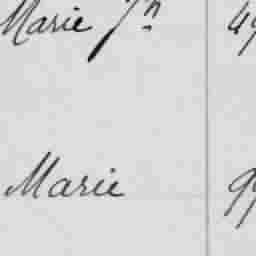 Marie Jn 49
Marie 99